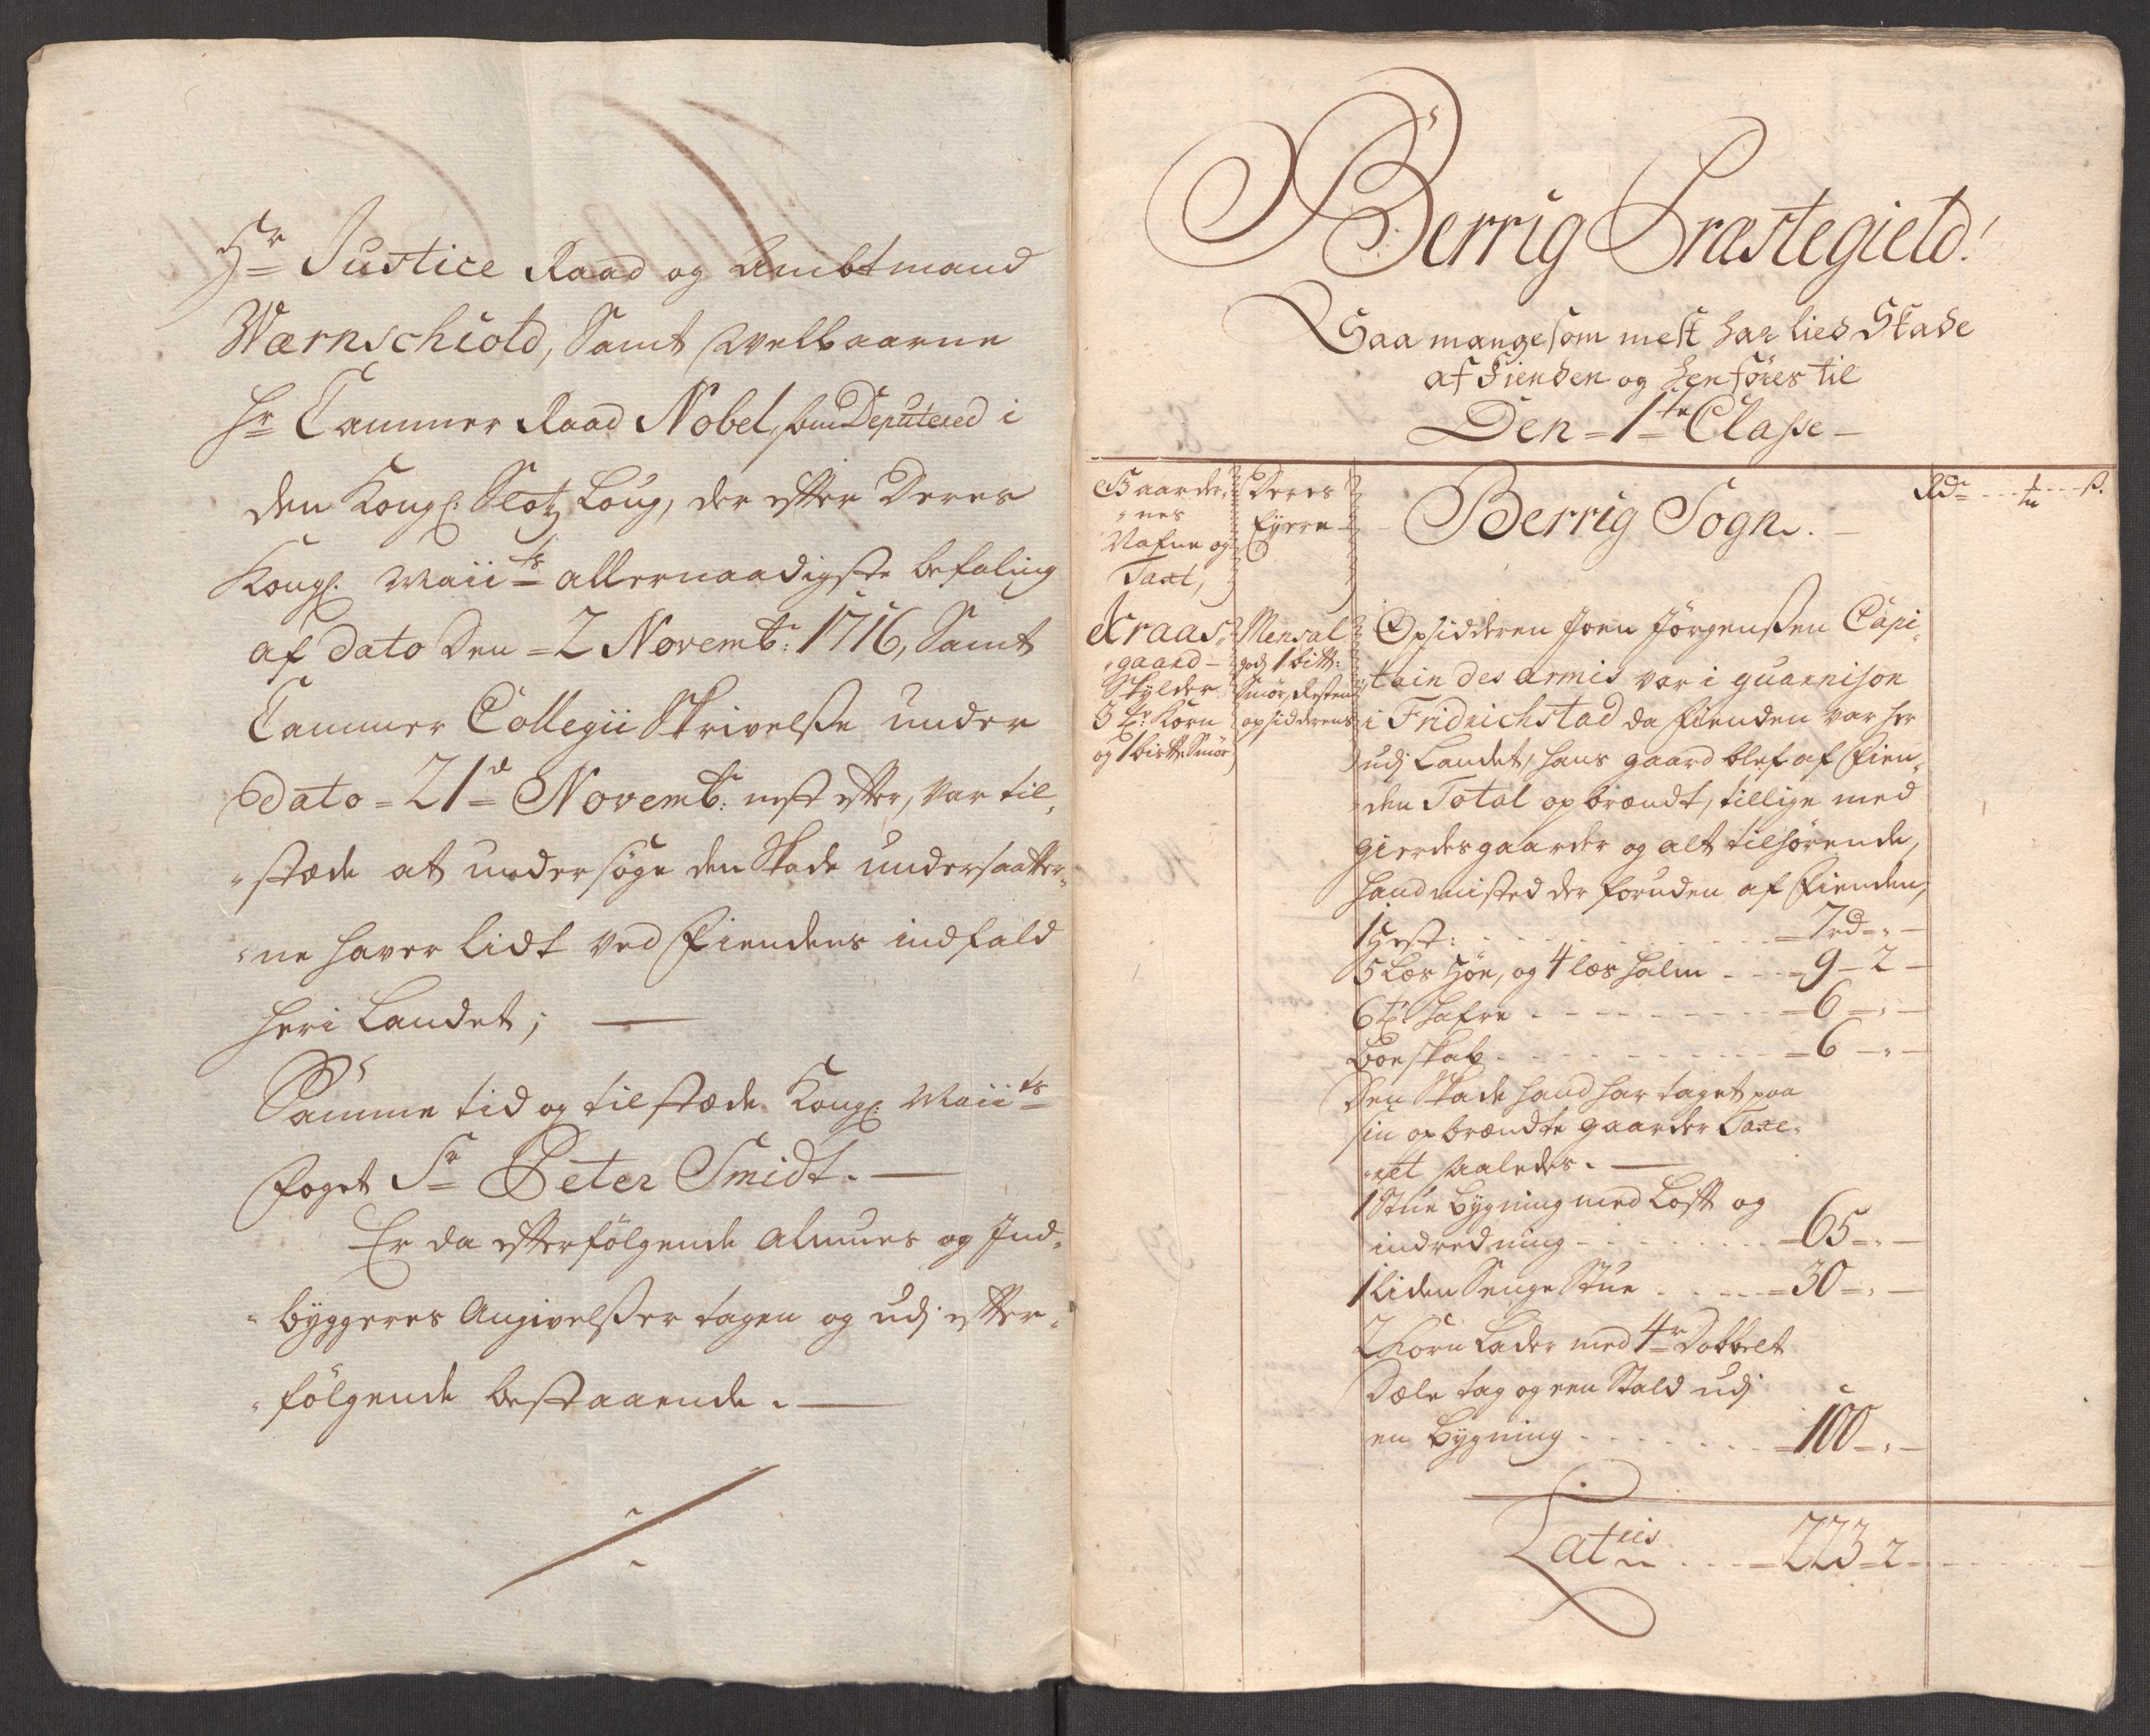 Hr Justice Raad og Ambtmand
Wærnschiold, Samt Welbaarne
Hr Cammer Raad Nobel, som Deputered i
den Kongl: Slotz Loug, der efter Deres
Kongl: Maiits allernaadigste befaling
af dato Den 2 Novembr: 1716, Samt
Cammer Collegii Skrivelsse under
dato 21d Novembr: nest efter, var til,,
,,stæde at undersøge den Skade undersaatter,,
,,ne haver lidt ved Fiendens indfald
her i Landet; —
Samme tid og til stæde Kongl: Maiits
Foget Sr Peter Smidt. —
Er da efterfølgende Almues og Ind,,
,,byggeres Angivelsser tagen og udj efter,,
,,følgende bestaaende. —
Berrig Præstegield!
Saa mange som mest har lied Skade
af Fienden og henføres til
Den 1te Classe
Gaarder,,
,,nes
Nafne og
Taxt,
Deres
Eyere
Berrig Sogn.
Rdr ß.
Kraas,,
,,gaard
Skylder
3 tr: Korn
og 1 bitt: Smør
Mensal
godz 1 bitt:
Smør, Resten
opsidderens
Opsidderen Joen Jørgenssen Capi,,
,,tain des Armis var i guarnison
i Fridrichstad da fienden var her
udj Landet, hans gaard blef af Fien,,
,,den Total opbrændt, tillige med
gierdesgaarder og alt tilhørende,
hand misted der foruden af Fienden,
1 Hest: 7 rd
5 Læs Høe, og 4 læs halm 9 - 2
6 tr hafre 6
Boeskab 6
Den Skade hand har taget paa
sin opbrændte gaarder Taxe,,
,,ret saaledes. —
1 Stue bygning med Loft og
indredning 65
1 liden Senge Stue 30
2 Korn Lader med 4re Dobbelt
Dæle tag og een Stald udj
en bygning 100
Latus 223 - 2